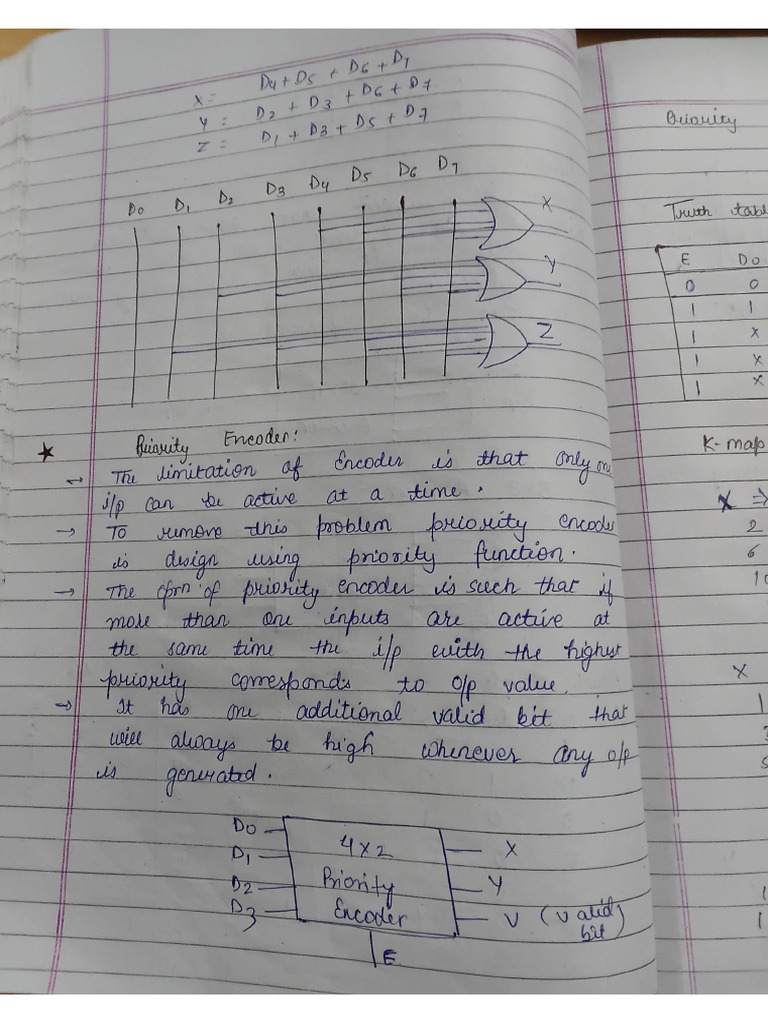 X = D4 + D5 + D6 + D7
Y = D2 + D3 + D6 + D7
Z = D1 + D3 + D5 + D7
D0 D1 D2 D3 D4 D5 D6 D7
X
Y
Z
★ Priority Encoder:
→ The limitation of Encoder is that only one
i/p can be active at a time.
→ To remove this problem priority encoder
is design using priority function.
→ The oprn of priority encoder is such that if
more than one inputs are active at
the same time the i/p with the highest
priority corresponds to o/p value.
→ It has one additional valid bit that
will always be high whenever any o/p
is generated.
D0
D1
D2
D3
4x2
Priority
Encoder
X
Y
V (valid
bit)
E
Priority
Truth tabl
E D0
0 0
1 1
1 x
1 x
1 x
K-map
X =>
2
6
10
X
1
1
1